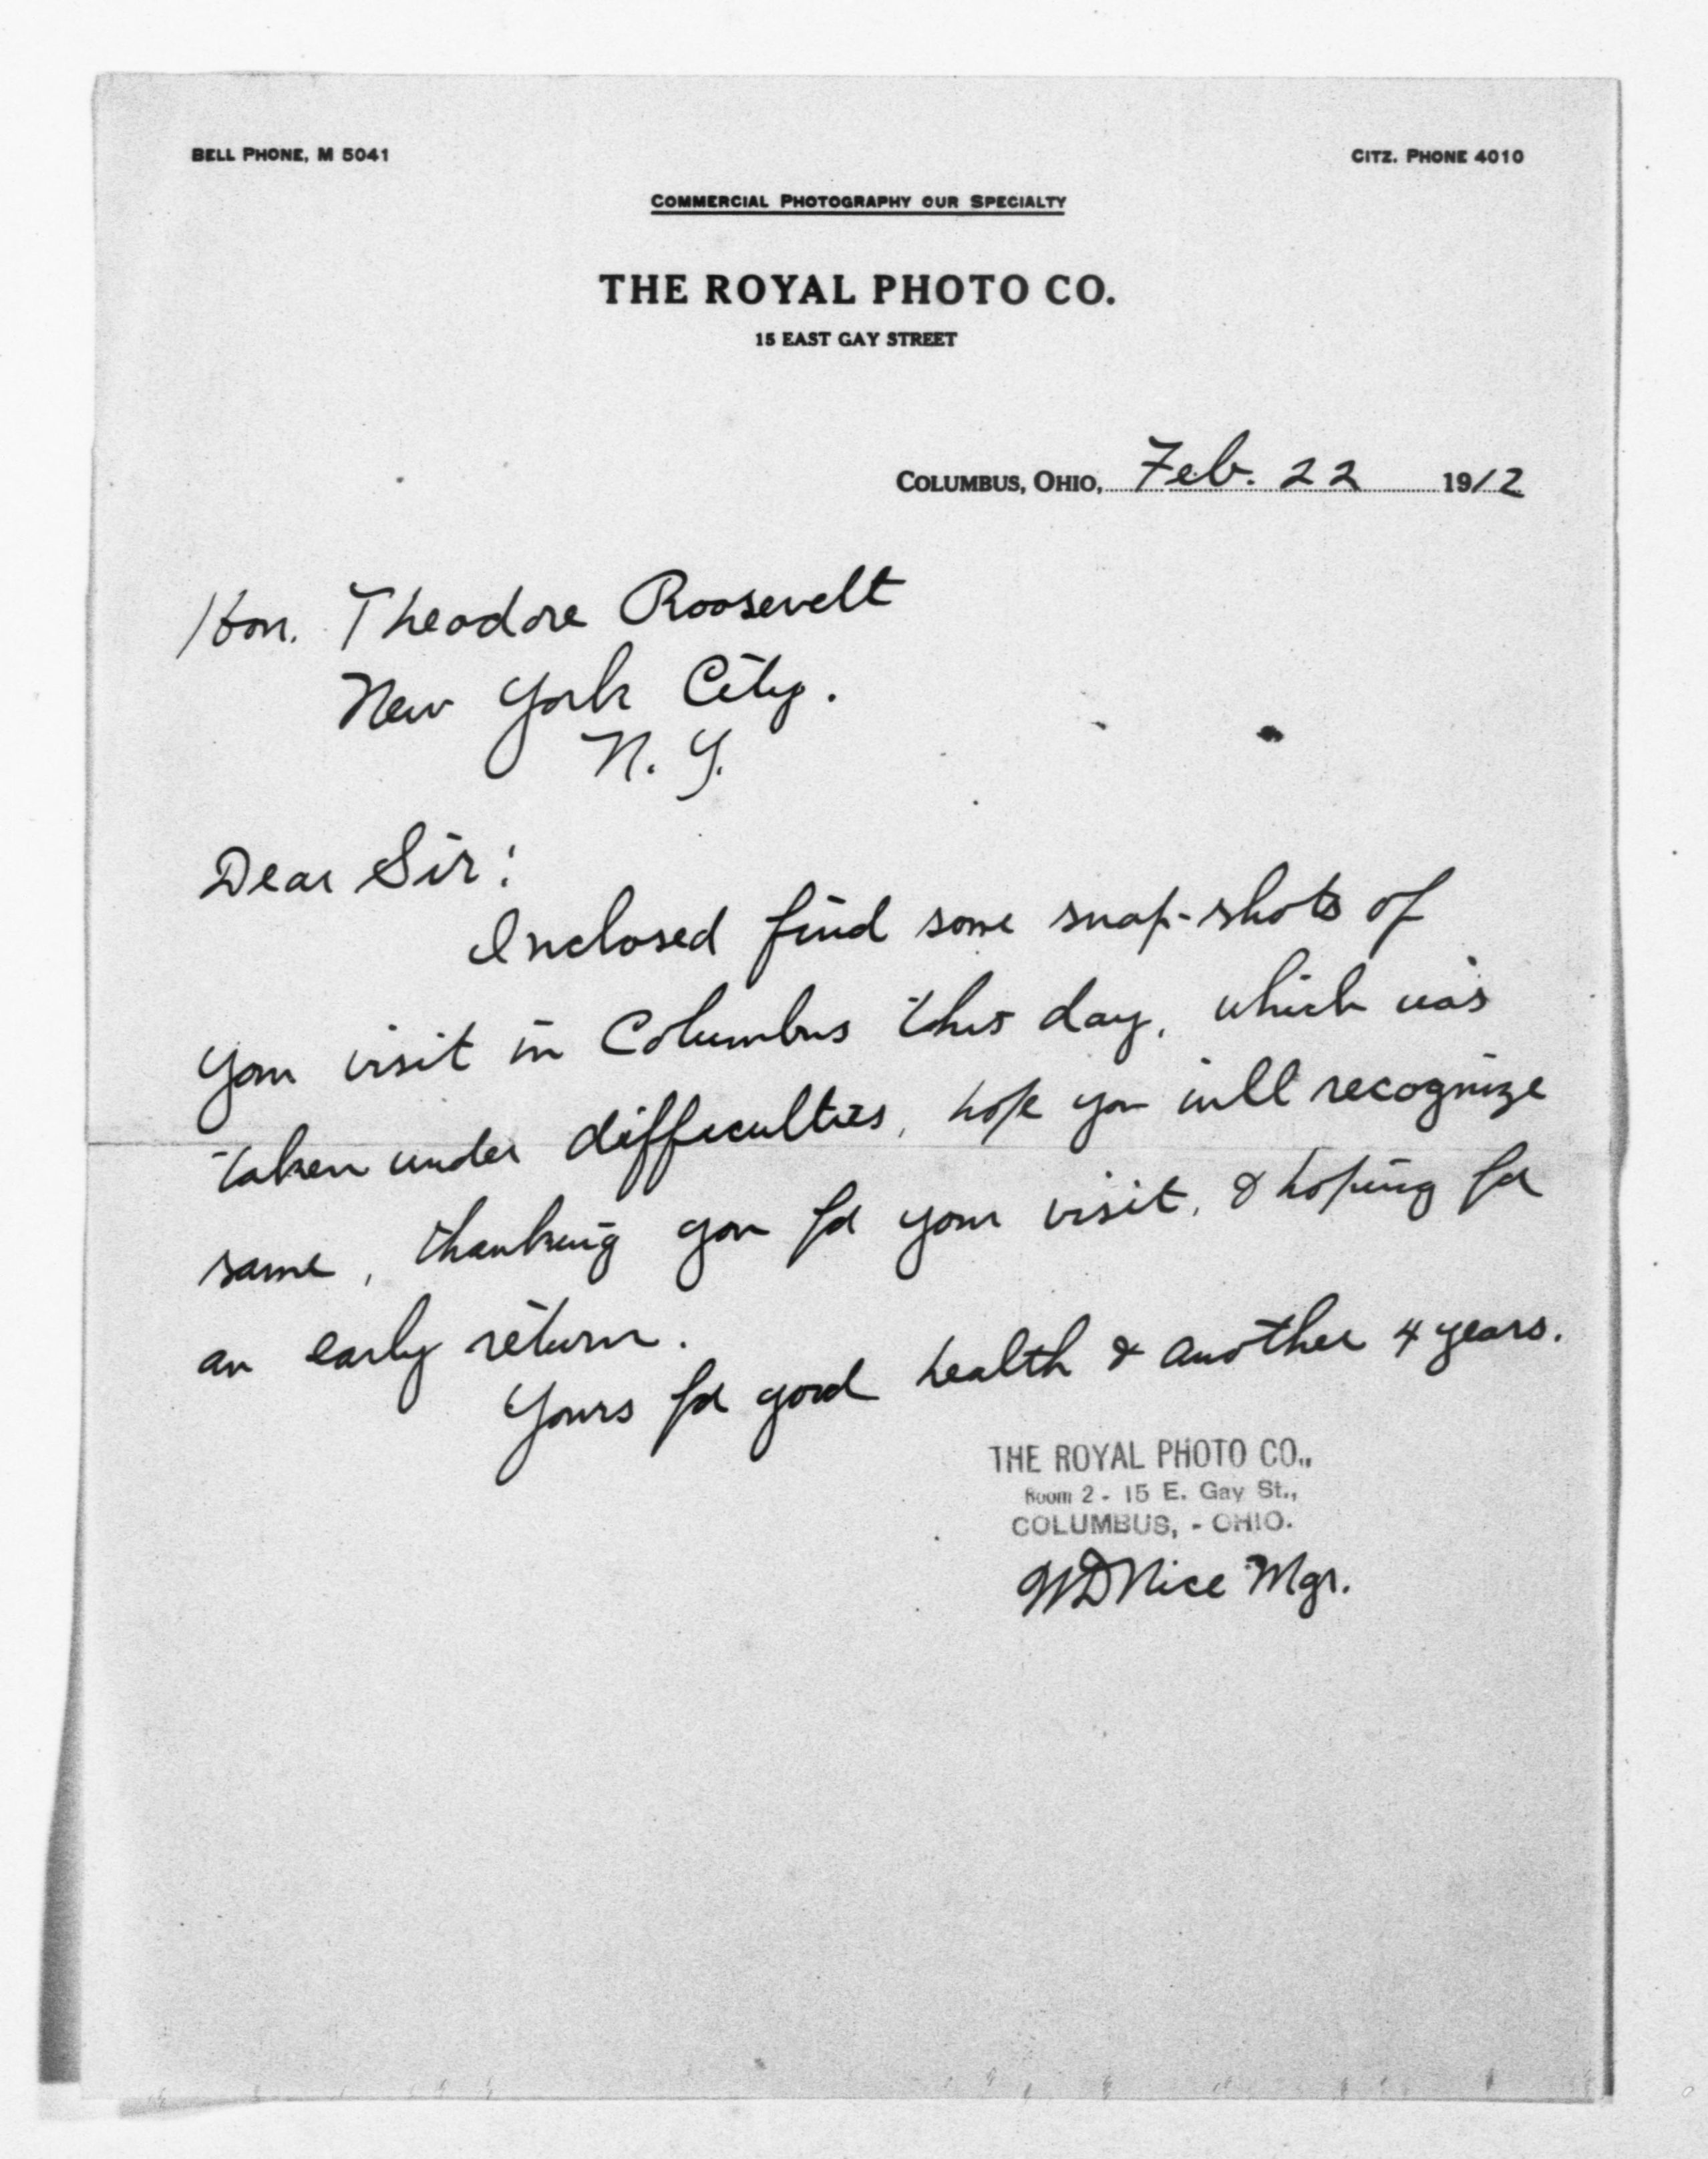 BELL PHONE, M 5041
CITZ. PHONE 4010
COMMERCIAL PHOTOGRAPHY OUR SPECIALTY
THE ROYAL PHOTO CO.
15 EAST GAY STREET
COLUMBUS, OHIO, Feb. 22 1912
Hon. Theodore Roosevelt
New York City.
N. Y.
Dear Sir:
Inclosed find some snap-shots of
your visit in Columbus this day, which was
taken under difficulties, hope you will recognize
same, thanking you for your visit, & hoping for
an early return.
Yours for good health & another 4 years.
THE ROYAL PHOTO CO.,
Room 2 - 15 E. Gay St.,
COLUMBUS, - OHIO.
WD Nice Mgr.